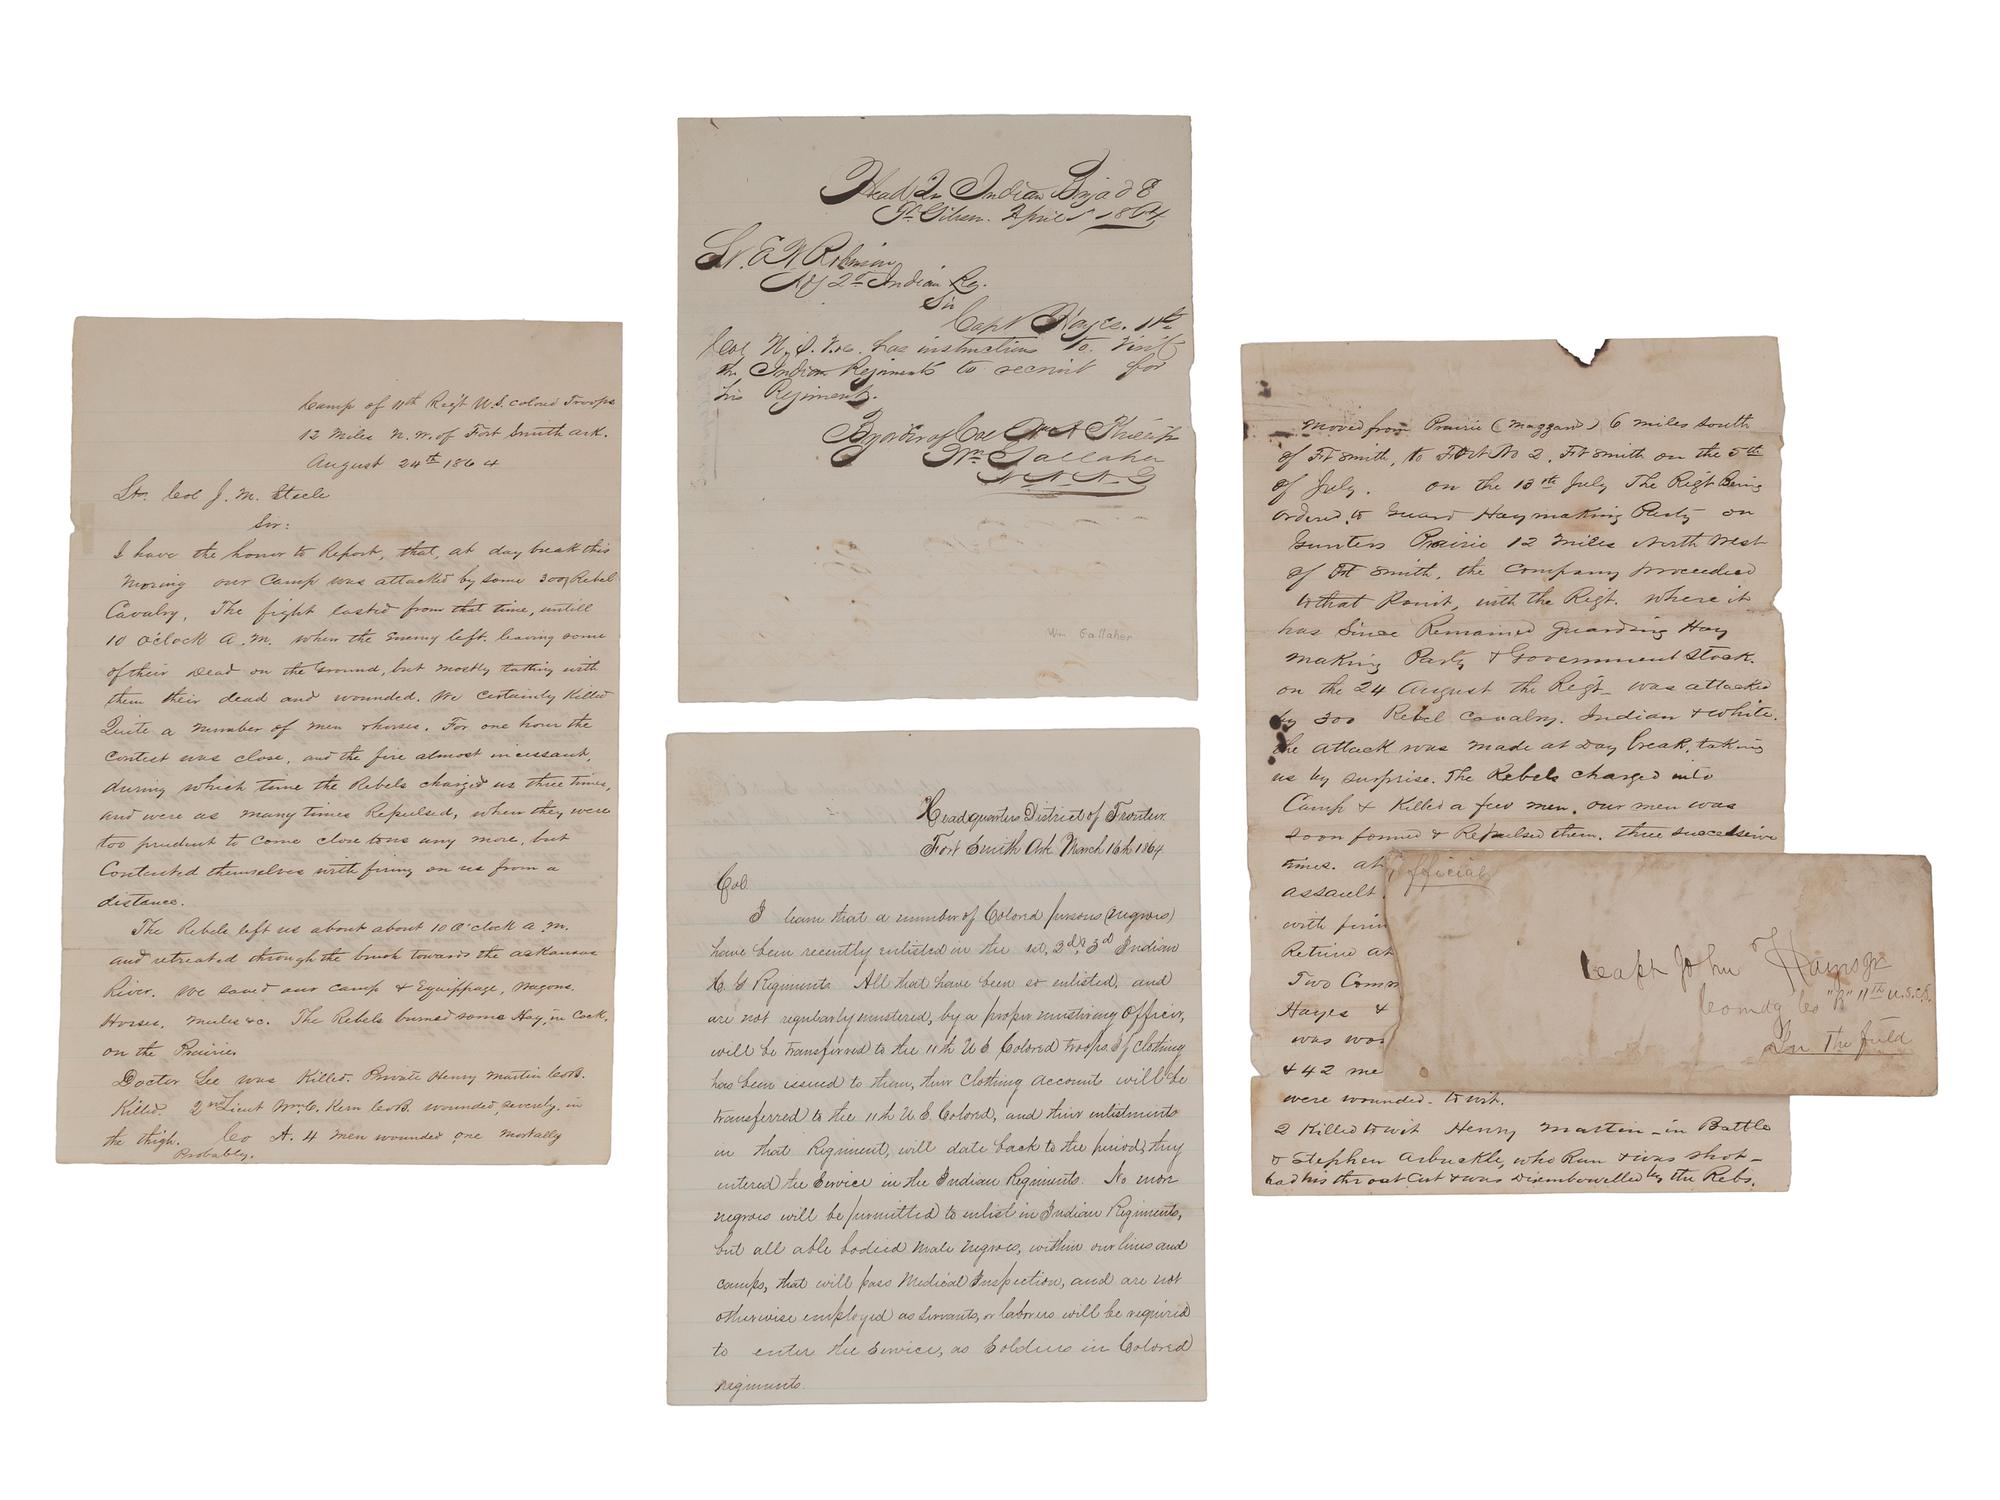 Camp of 11th Regt U.S. Colored Troops
12 Miles N. W. of Fort Smith Ark.
August 24th 1864
Lt. Col J. M. Steele
Sir:
I have the honor to Report, that, at day break this
Moring our Camp was attacked by some 300, Rebel
Cavalry, The fight lasted from that time, untill
10 O'clock A. M. when the Enemy left. leaving some
of their Dead on the Ground, but mostly tatking with
them their dead and wounded. We certainly Killed
Quite a number of men & horses. For one hour the
Contest was close, and the fire almost incessant,
during which time the Rebels charged us three times,
and were as many times Repulsed, when they were
too prudent to Come close to us any more, but
Contented themselves with firing on us from a
distance.
The Rebels left us about about 10 O'clock a.m.
and retreated through the brush towards the arkansas
River. We saved our camp & Equippage, Wagons.
Horses. Mules &c. The Rebels burned some Hay, in Cock,
on the Prairie.
Doctor Lee was Killed. Private Henry Martin Co B.
Killed. 2nd Lieut Wm C. Kern Co B. wounded, severely, in
the thigh. Co A. 4 men wounded one Mortally
Probably.
Head Qrs Indian Brigade
Ft. Gibson. April 1864
Lt. E W Robinson
Adj 2d Indian Rg.
Sir
Capt Hayes. 11th
Col N. S. Vol. has instructions to visit
the Indian Regiments to recruit for
his Regiment.
By order of Col Wm A Phillips
Wm Gallaher
A. A. A. G
Wm Gallaher
Headquarters District of Frontier.
Fort Smith Ark March 16th 1864
Col.
I learn that a number of Colored persons (Negroes)
have been recently enlisted in the 1st, 2d & 3d Indian
H. G Regiments. All that have been so enlisted, and
are not regularly mustered, by a proper mustering Officer,
will be transferred to the 11th U S. Colored troops. If clothing
has been issued to them, their Clothing Accounts will be
transferred to the 11th U S. Colored, and their enlistments
in that Regiment, will date back to the period, they
entered the Service in the Indian Regiments. No more
negroes will be permitted to enlist in Indian Regiments,
but all able bodied Male Negroes, within our lines and
camps, that will pass Medical Inspection, and are not
otherwise employed as Servants, or laborers will be required
to enter the Service, as Soldiers in Colored
regiments.
Moved from Prairie (Maggard) 6 miles south
of Ft Smith, to Fort No 2. Ft Smith on the 5th
of July. on the 13th July The Regt Being
ordered to Guard Haymaking Party on
Gunters Prairie 12 Miles North West
of Ft Smith, the Company proceeded
to that Point, with the Regt. where it
has Since Remained guarding Hay
making Party & Government Stock.
on the 24 August the Regt was attacked
by 300 Rebel Cavalry. Indian & White.
the attack was made at Day break. taking
us by surprise. The Rebels charged into
Camp & Killed a few men. our men was
soon formed & Repulsed them. three successive
times. at
assault
with firin
Retire at
Two Comm
Hayes &
was wou
& 42 me
were wounded. to wit.
2 Killed to wit Henry Martin - in Battle
& Stephen Arbuckle, who Run & was shot -
had his throat Cut & was Disembowelled by the Rebs.
Official
Capt John Hains Jr
Comdg Co "B" 11th U.S.C.
In The field